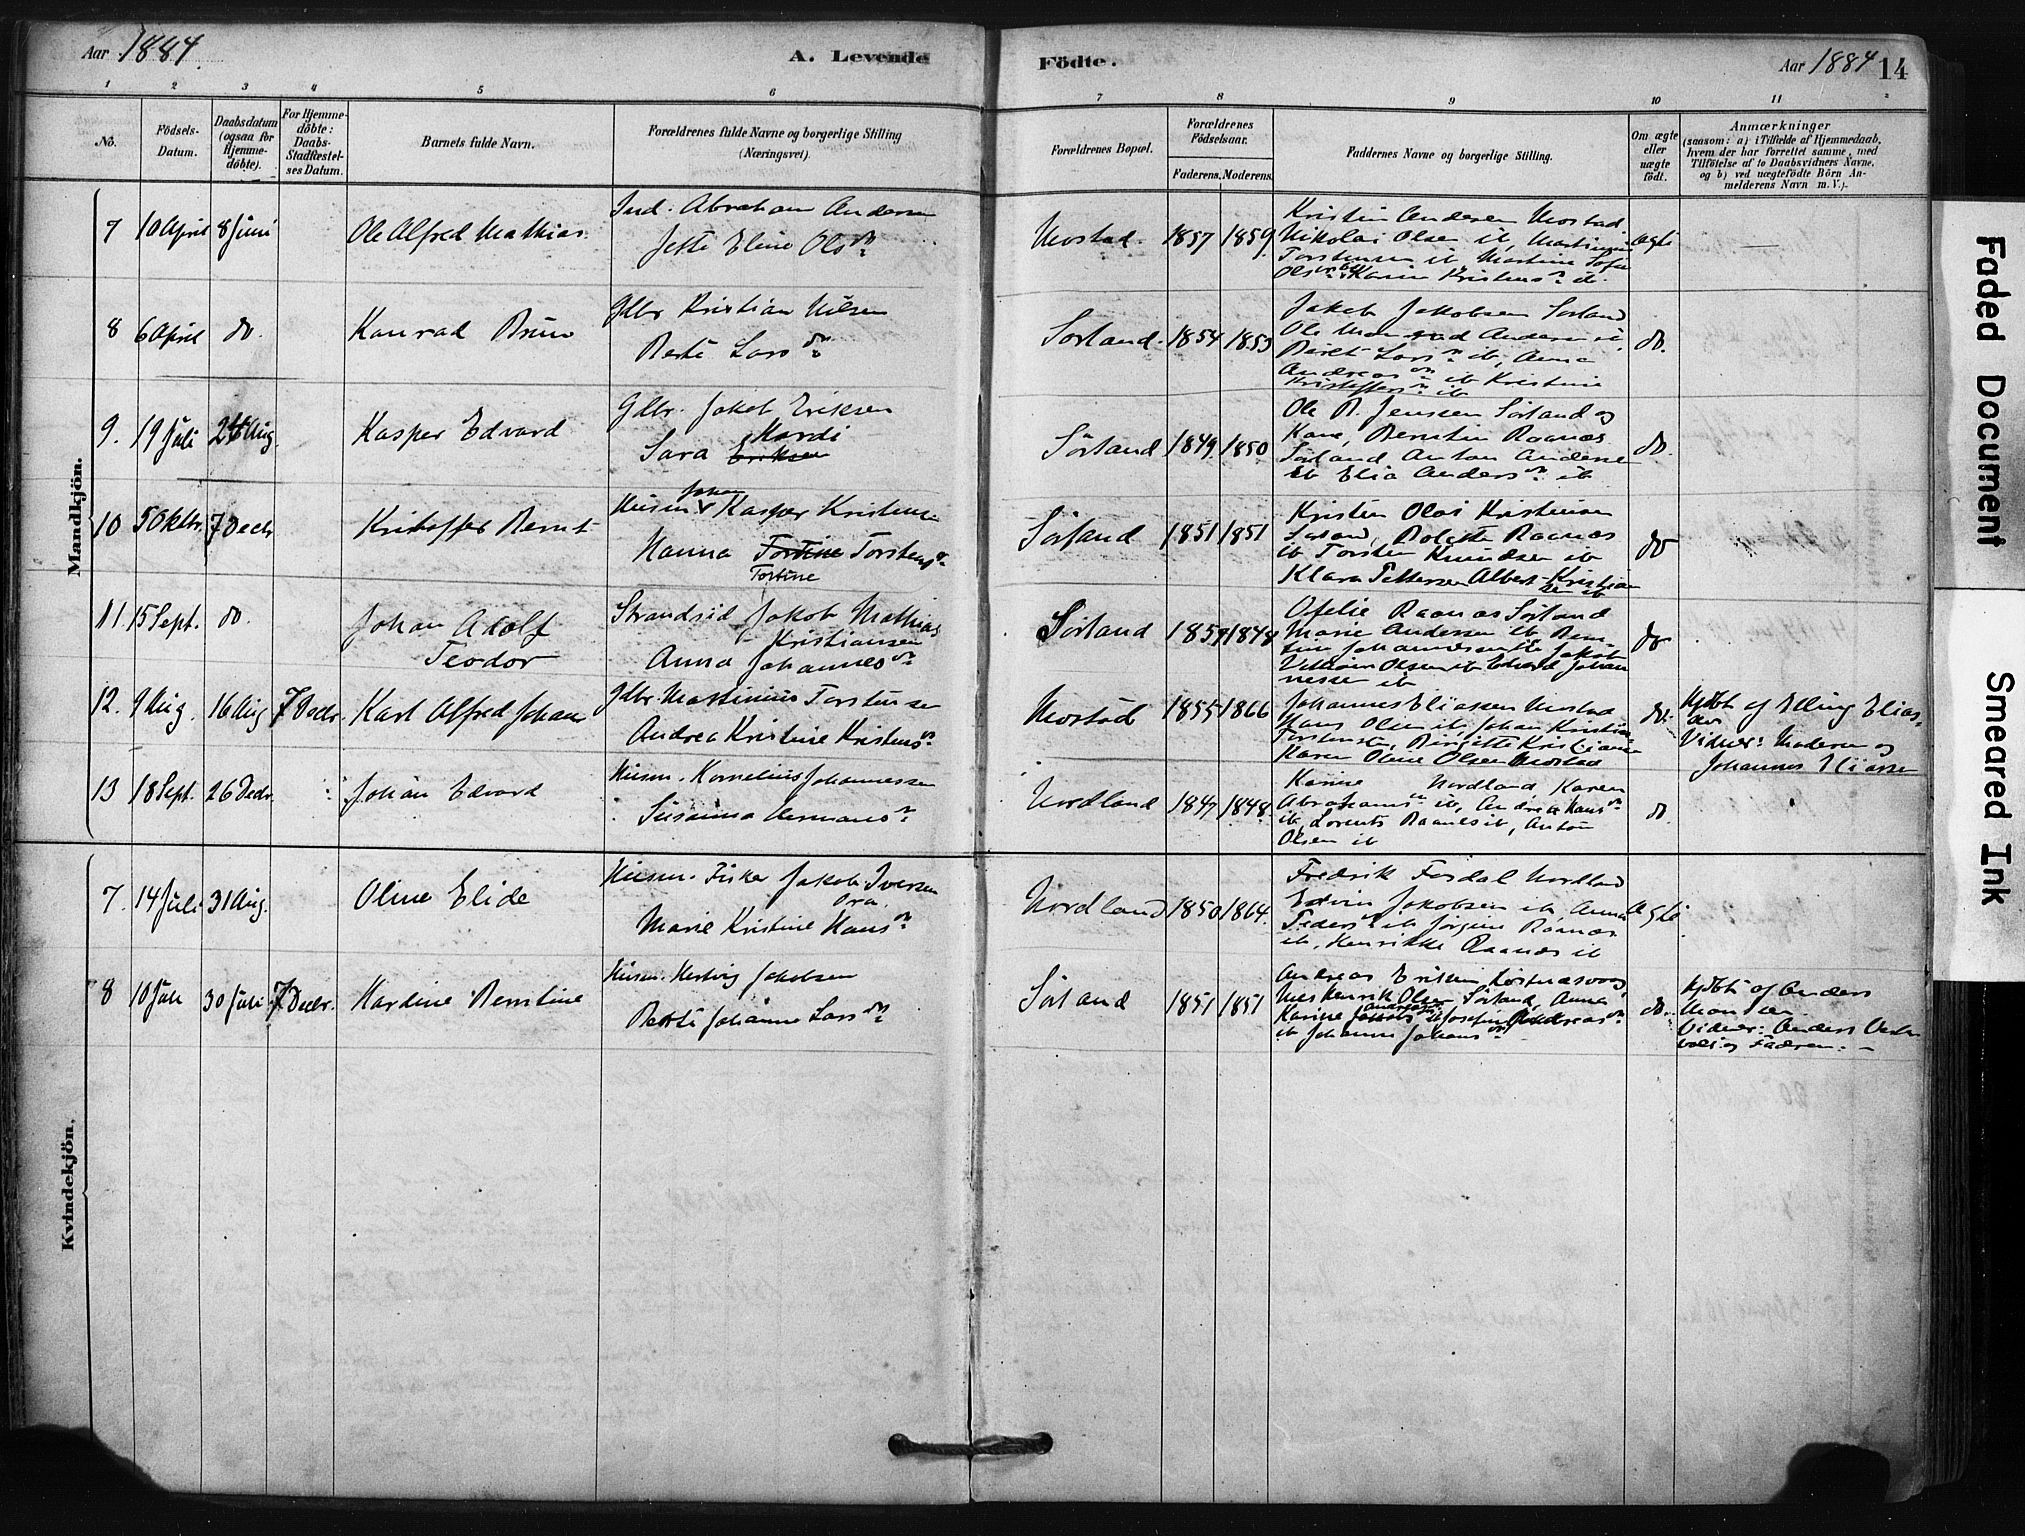 Aar 1884.
A. Levende
Födte.
Aar 1884 14
1 2 3 4 5 6
7 8 9 10 11
No.
Födsels-Datum.
Daabsdatum (ogsaa for Hjemme-döbte).
For Hjemme-döbte: Daabs-Stadfæstel-ses Datum.
Barnets fulde Navn.
Forældrenes fulde Navne og borgerlige Stilling
(Næringsvei).
Forældrenes Bopæl.
Forældrenes Födselsaar.
Faderens. Moderens.
Faddernes Navne og borgerlige Stilling.
Om ægte eller uægte födt.
Anmærkninger
(saasom: a) i Tilfælde af Hjemmedaab,
hvem der har forrettet samme, med
Tilföielse af to Daabsvidners Navne,
og b) ved uægtefödte Börn An-
melderens Navn m. V.).
Mandkjön.
7 10 April 8 Juni Ole Alfred Mathias
Ind: Abraham Andersen
Jette Eline Olsdr
Mostad. 1857 1859
Kristin Andersen Mostad
Nikolai Olsen ib,
Torstensen ib Martine Sofie
Karin Kristensdr ib.
ægte
8 6 April do. Konrad Brun
Gdbr Kristian Nilsen
Berte Larsdr
Sorland. 1854 1853
Jakob Jakobsen Sorland
Ole Andersen ib
Beret Larsdr ib, Anna
Andreasdr ib Kristine
Kristoffersdr ib
do.
9. 19 Juli 24 Aug. Kasper Edvard
Gdbr. Jakob Eriksen
Sara Eriksen
Sörland 1849 1850
Ole P. Jenssen Sörland og
Kone, Berntin Raanæs
Sörland Anton Andersen
ib Elia Andersdr ib
do.
10 5 Oktbr. 7 Decbr Kristoffer Bernt
Husm Johan Kasper Kristensen
Hanna Tortine Torstensdr
Tortine
Sörland 1851 1851
Kristen Olai Kristensen
Sörland, Bolette Raanæs
ib Torsten Knudsen ib
Klara Pettersen Albert Kristian
sen ib
do
11. 15 Sept. do. Johan Adolf
Teodor
Strandsid Jakob Mathias
Kristiansen
Anna Johannesdr
Sörland 1848
Ofelie Raanæs Sörland
Marie Andersen ib Bern-
tine Johannesen ib Jakob
Vilhelm Olsen ib Edvard Johan
nessen ib
do
12. 9 Aug. 16 Aug 7 Decbr. Karl Alfred Johan
Gdbr. Martinius Torstensen
Andrea Kristine Kristensdr
Mostad 1855 1866
Johannes Eliassen Mostad
Hans Olsen ib, Johan Kristian
Torstensen, Birgitte Kristiansen
Karen Oline Olsen Mostad
do.
Hjdbt af Elling Elias-
sen
Vidner: Moderen og
Johannes Eliassen
13 18 Sept. 26 Decbr. Johan Edvard
Husm. Kornelius Johannessen
Susanna Hermansdr
Nordland 1847 1848.
Karine Nordland Karen
Abrahamsdr ib, Andrea Hansdr
ib, Lorents Raanæs ib, Anton
Olsen ib
do.
Kvindekjön.
7. 14 Juli 31 Aug. Oline Elide
Husm. Fisker Jakob Iversen
Marie Kristine Hansdr
Nordland 1850 1864.
Fredrik Nordland
Edvin Jakobsen ib, Anna
Pedersdr ib Jörgine Raanæs
ib, Henrikke Raanæs ib
ægte
8 10 Juli 30 Juli 7 Decbr. Hardine Berntine
Husm. Hertvig Jakobsen
Berte Johanne Larsdr
Sörland 1851 1851
Andreas Eriksen
Nils Henrik Olsen Sörland, Anna
Karine ib Josefine Andreasdr
ib Johanna Johansdr
do.
Hjdbt af Anders
Vidner: Anders
og Faderen.
Faded Document
Smeared Ink